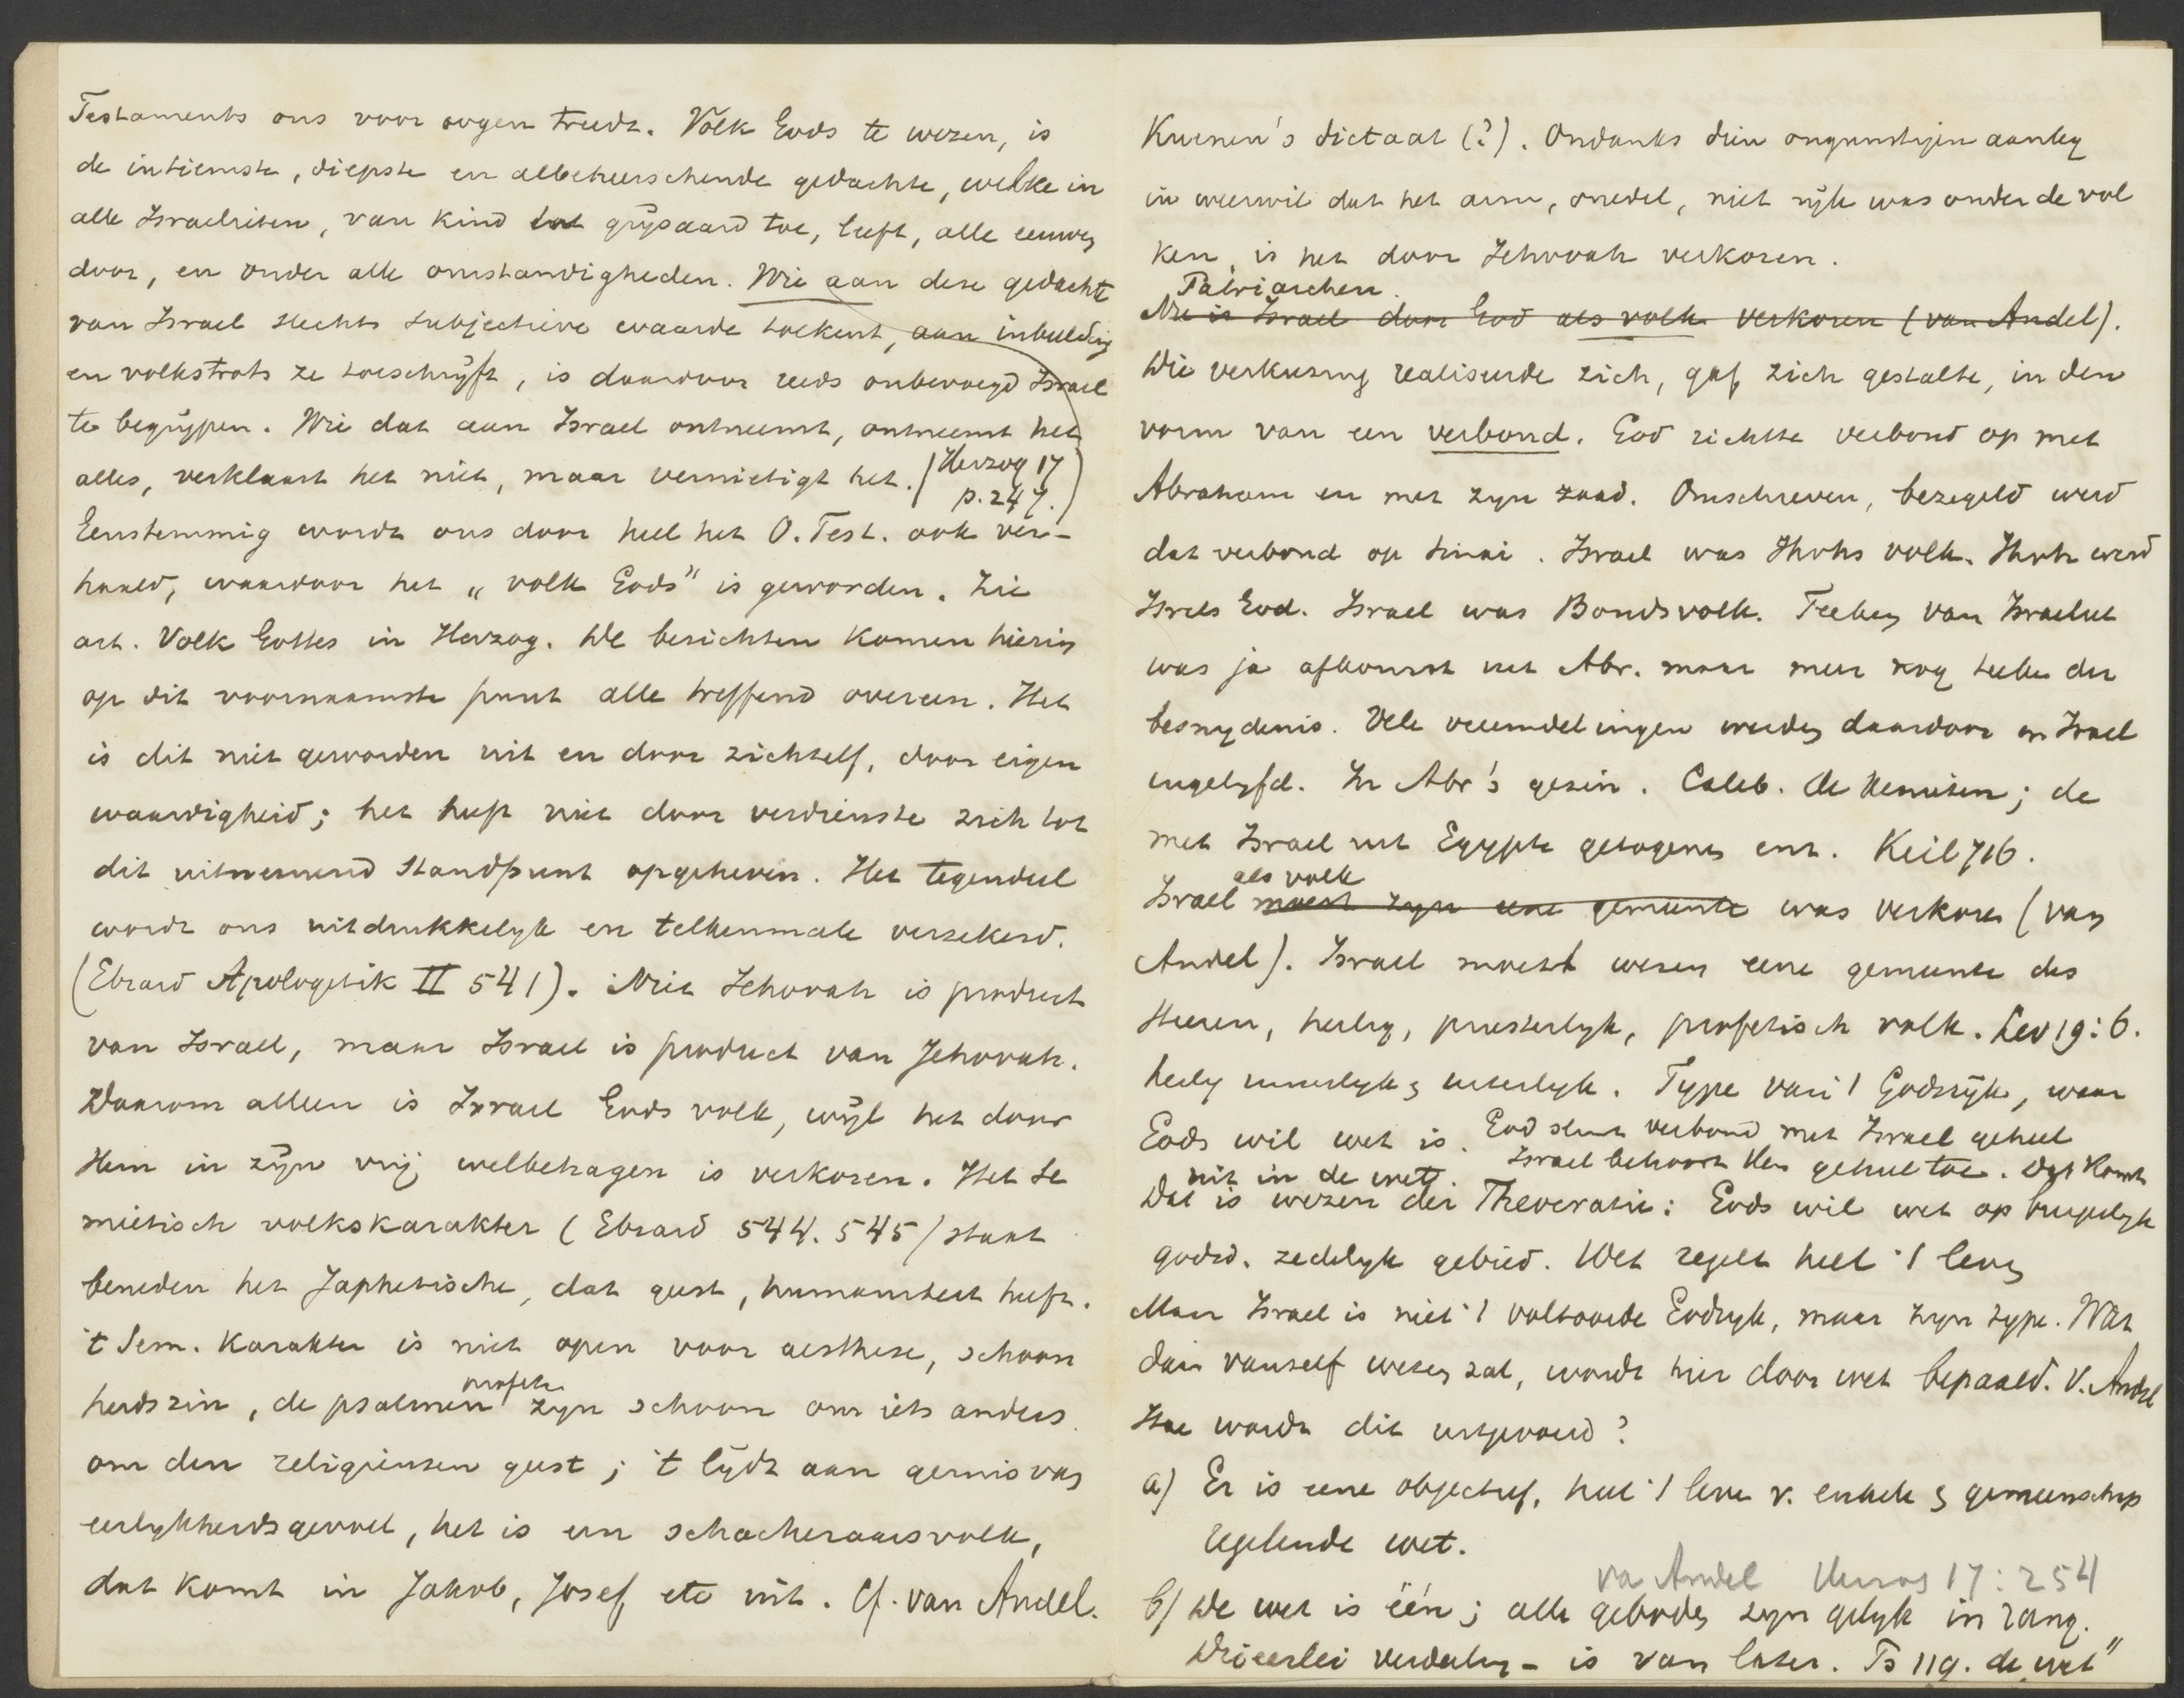 Testaments ons voor oogen treedt. Volk Gods te wezen, is
de intiemste, diepste en albeheerschende gedachte, welke in
alle Israelieten, van kind tot grijsaard toe, leeft, alle eeuwen
door, en onder alle omstandigheden. Wie aan deze gedachte
van Israel slechts subjectieve waarde toekent, aan inbeelding
en volkstrots ze toeschrijft, is daardoor reeds onbevoegd Israel
te begrijpen. Wie dat aan Israel ontneemt, ontneemt het
alles, verklaart het niet, maar vernietigt het. (Herzog 17
p. 247.)
Eenstemmig wordt ons door heel het O. Test. ook ver-
haald, waardoor het „volk Gods" is geworden. Zie
art. Volk Gottes in Herzog. De berichten komen hierin
op dit voornaamste punt alle treffend overeen. Het
is dit niet geworden uit en door zichzelf, door eigen
waardigheid; het heeft niet door verdienste zich tot
dit uitnemend standpunt opgeheven. Het tegendeel
wordt ons uitdrukkelijk en telkenmale verzekerd.
(Ebrard Apologetik II 541). Niet Jehovah is product
van Israel, maar Israel is product van Jehovah.
Daarom alleen is Israel Gods volk, wijl het door
Hem in zijn vrij welbehagen is verkoren. Het Se
mietisch volkskarakter (Ebrard 544. 545) staat
beneden het Japhetische, dat geest, humaniteit heeft.
't Sem. karakter is niet open voor aesthese, schoon
heidszin, de psalmen profeten zyn schoon om iets anders
om den religieusen geest; 't lijdt aan gemis van
eerlykheidsgevoel, het is een schacheraarsvolk,
dat komt in Jakob, Josef, etc uit. Cf. van Andel.
Kuenen's dictaat (?). Ondanks dien ongunstigen aanleg
in weerwil dat het arm, onedel, niet rijk was onder de vol
ken, is het door Jehovah verkoren.
Patriarchen.
Nu is Israel door God als volk verkoren (van Andel).
Die verkiezing realiseerde zich, gaf zich gestalte, in den
vorm van een verbond. God richtte verbond op met
Abraham en met zyn zaad. Omschreven, bezegeld werd
dat verbond op Sinai. Israel was Jhvhs volk. Jhvh werd
Isrels God. Israel was Bondsvolk. Teeken van Israeliet
was ja afkomst uit Abr. maar meer nog teeken der
besnydenis. Vele vreemdelingen werden daardoor in Israel
ingelyfd. In Abr's gezin. Caleb. de Kenieten; de
met Israel uit Egypte getogenen enz. Keil 716.
als volk
Israel moest zyn eene gemeente was verkoren (van
Andel). Israel moest wezen eene gemeente des
Heeren, heilig, priesterlyk, profetisch volk. Lev 19:6.
heilig innerlyk & uiterlyk. Type van 't Godsrijk, waar
Gods wil wet is. God sluit verbond met Israel geheel
Israel behoort Hem geheel toe. Dat komt
uit in de wet.
Dat is wezen der Theocratie: Gods wil wet op burgerlyk
godsd. zedelyk gebied. Wet regelt heel 't leven
Maar Israel is niet 't voltooide Godsryk, maar zyn type. Wat
dan vanzelf wezen zal, wordt hier door wet bepaald. V. Andel
Hoe wordt dit uitgevoerd?
a) Er is eene objectief, heel 't leven v. enkele & gemeenschap
regelende wet.
va Andel Herzog 17:254
b) De wet is één; alle geboden zyn gelyk in rang.
Drieerlei verdeeling - is van later. Ps 119. de wet"